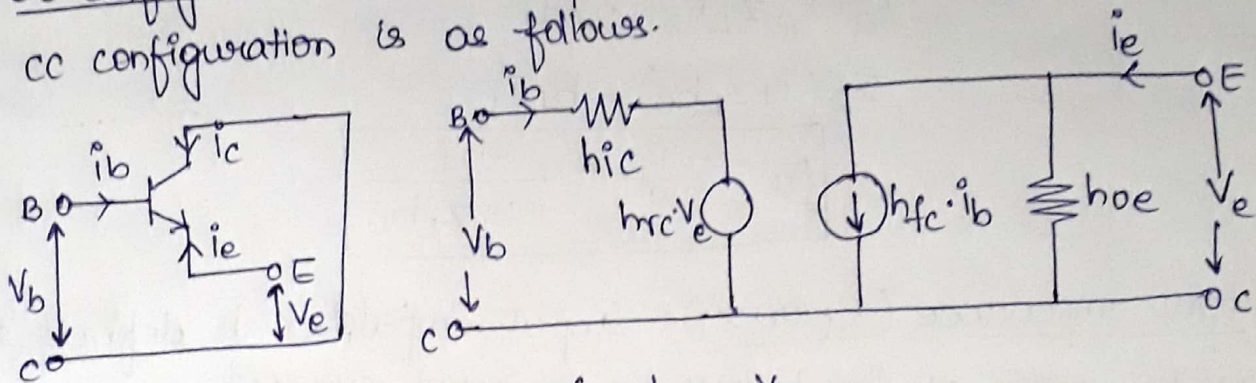 cc configuration is as follows.
ib
ic
B
ie
E
Vb
Ve
C
ib
B
hic
hrc·Ve
Vb
C
hfc·ib
hoe
ie
E
Ve
C